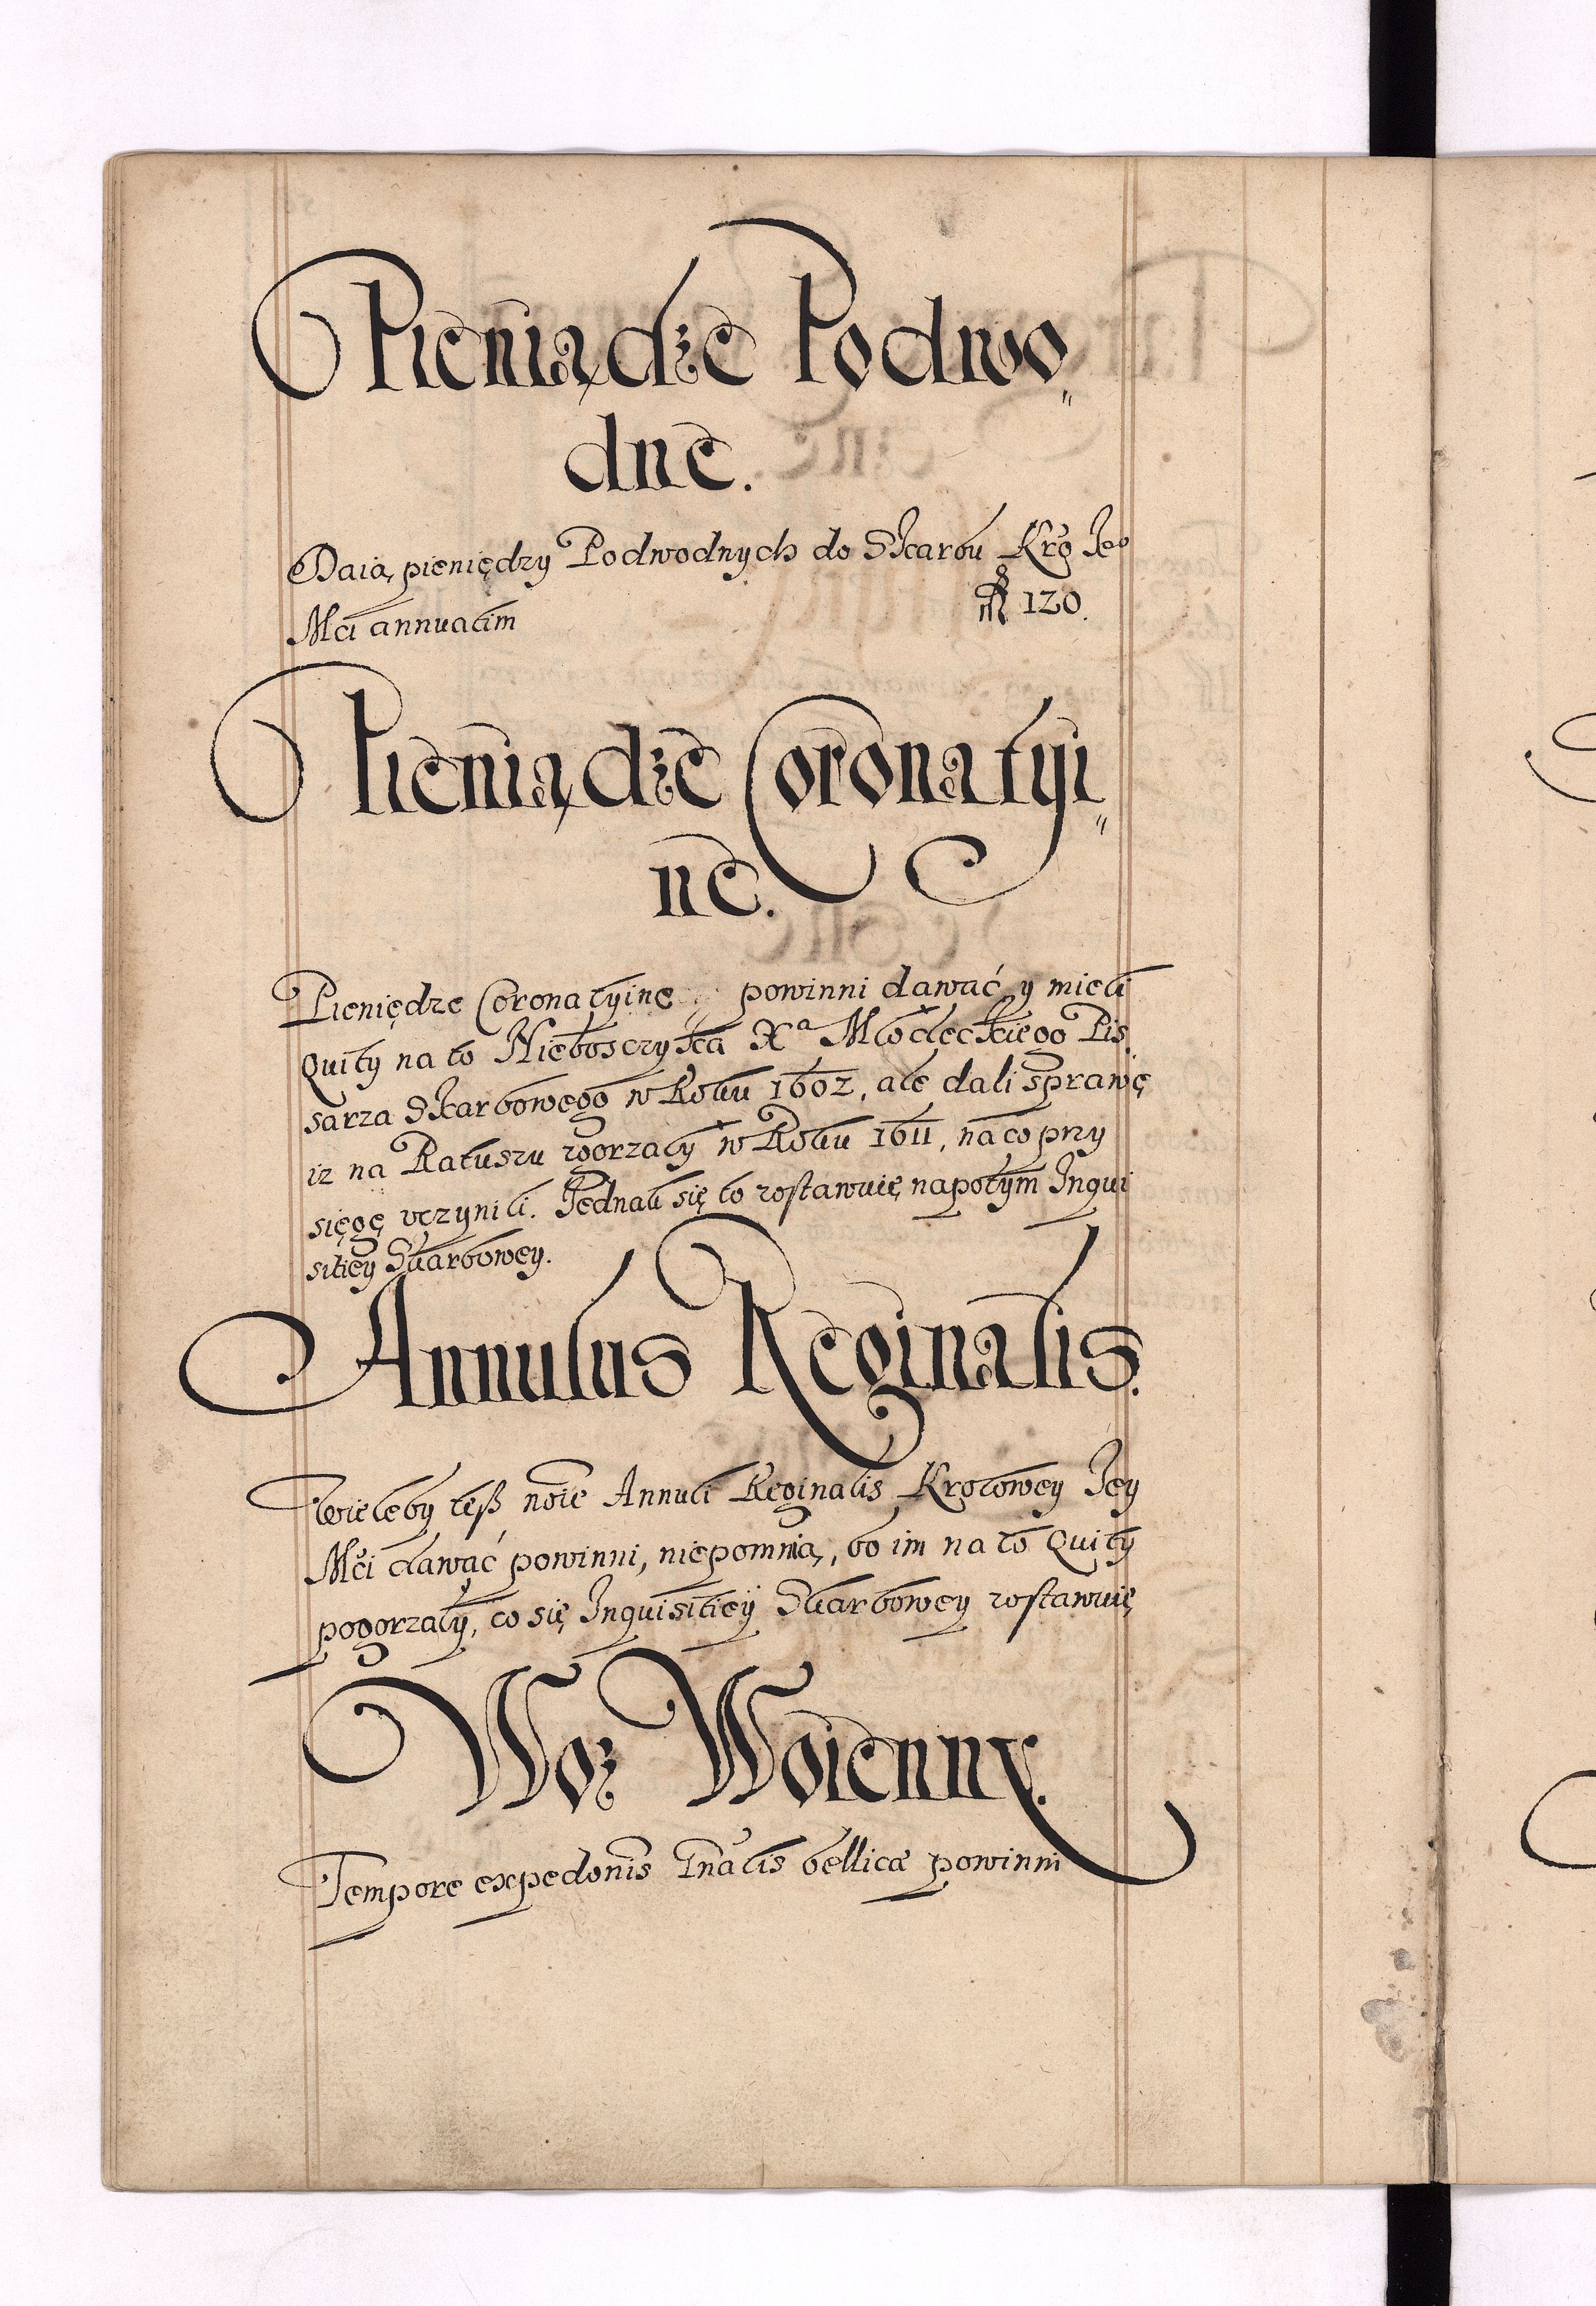 Pieniądze Podwo„
dne.
Daią pieniędzy Podwodnych do Skarbu Krō Ieo
Mci annuatim 120.
Pieniądze Coronatyi„
ne.
Pieniędze Coronatyine powinni dawać y mieli
Quity na to Nieboszczyka Xa Młodeckiego Pis
sarza Skarbowego w Roku 1602, ale dali sprawę
iz na Ratuszu zgorzały w Roku 1611, na co przy
sięgę uczynili. Jednak się to zostawuię napotym Inqui
sitiey Skarbowey.
Annulus Reginalis.
Wieleby teß noīe Annuli Reginalis Krolowey Jey
Mci dawać powinni, niepomnią, bo im na to Quity
pogorzały, co się Inquisitiey Skarbowey zostawuię
Woz Woienny.
Tempore expedonis Gnalis bellicæ powinni